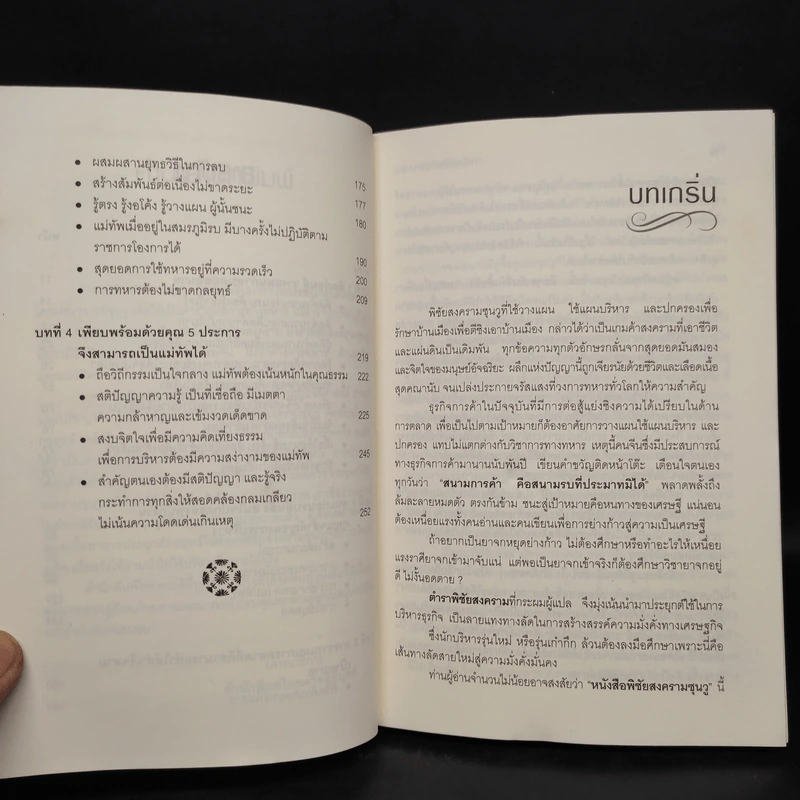 ● ผสมผสานยุทธวิธีในการลบ 175
● สร้างสัมพันธ์ต่อเนื่องไม่ขาดระยะ 177
● รู้ตรง รู้งอโค้ง รู้วางแผน ผู้นั้นชนะ 180
● แม่ทัพเมื่ออยู่ในสมรภูมิรบ มีบางครั้งไม่ปฏิบัติตาม
ราชการโองการได้ 190
● สุดยอดการใช้ทหารอยู่ที่ความรวดเร็ว 200
● การทหารต้องไม่ขาดกลยุทธ์ 209
บทที่ 4 เพียบพร้อมด้วยคุณ 5 ประการ
จึงสามารถเป็นแม่ทัพได้ 219
● ถือวิถีกรรมเป็นใจกลาง แม่ทัพต้องเน้นหนักในคุณธรรม 222
● สติปัญญาความรู้ เป็นที่เชื่อถือ มีเมตตา
ความกล้าหาญและเข้มงวดเด็ดขาด 225
● สงบจิตใจเพื่อมีความคิดเที่ยงธรรม
เพื่อการบริหารต้องมีความสง่างามของแม่ทัพ 245
● สำคัญตนเองต้องมีสติปัญญา และรู้จริง
กระทำการทุกสิ่งให้สอดคล้องกลมเกลียว
ไม่เน้นความโดดเด่นเกินเหตุ 252
บทเกริ่น
พิชัยสงครามซุนวูที่ใช้วางแผน ใช้แผนบริหาร และปกครองเพื่อ
รักษาบ้านเมืองเพื่อตีชิงเอาบ้านเมือง กล่าวได้ว่าเป็นเกมค้าสงครามที่เอาชีวิต
และแผ่นดินเป็นเดิมพัน ทุกข้อความทุกตัวอักษรกลั่นจากสุดยอดมันสมอง
และจิตใจของมนุษย์อัจฉริยะ ผลึกแห่งปัญญานี้ถูกเจียรนัยด้วยชีวิตและเลือดเนื้อ
สุดคณานับ จนเปล่งประกายจรัสแสงที่วงการทหารทั่วโลกให้ความสำคัญ
ธุรกิจการค้าในปัจจุบันที่มีการต่อสู้แย่งชิงความได้เปรียบในด้าน
การตลาด เพื่อเป็นไปตามเป้าหมายก็ต้องอาศัยการวางแผนใช้แผนบริหาร และ
ปกครอง แทบไม่แตกต่างกับวิชาการทางทหาร เหตุนี้คนจีนซึ่งมีประสบการณ์
ทางธุรกิจการค้ามานานนับพันปี เขียนคำขวัญติดหน้าโต๊ะ เตือนใจตนเอง
ทุกวันว่า "สนามการค้า คือสนามรบที่ประมาทมิได้" พลาดพลั้งถึง
ล้มละลายหมดตัว ตรงกันข้าม ชนะสู่เป้าหมายคือหนทางของเศรษฐี แน่นอน
ต้องเหนื่อยแรงทั้งคนอ่านและคนเขียนเพื่อการย่างก้าวสู่ความเป็นเศรษฐี
ถ้าอยากเป็นยาจกหยุดย่างก้าว ไม่ต้องศึกษาหรือทำอะไรให้เหนื่อย
แรงราศียาจกเข้ามาจับแน่ แต่พอเป็นยาจกเข้าจริงก็ต้องศึกษาวิชายาจกอยู่
ดี ไม่งั้นอดตาย ?
ตำราพิชัยสงครามที่กระผมผู้แปล จึงมุ่งเน้นนำมาประยุกต์ใช้ในการ
บริหารธุรกิจ เป็นลายแทงทางลัดในการสร้างสรรค์ความมั่งคั่งทางเศรษฐกิจ
ซึ่งนักบริหารรุ่นใหม่ หรือรุ่นเก๋ากึ๊ก ล้วนต้องลงมือศึกษาเพราะนี่คือ
เส้นทางลัดสายใหม่สู่ความมั่งคั่งมั่นคง
ท่านผู้อ่านจำนวนไม่น้อยอาจสงสัยว่า "หนังสือพิชัยสงครามซุนวู" นี้